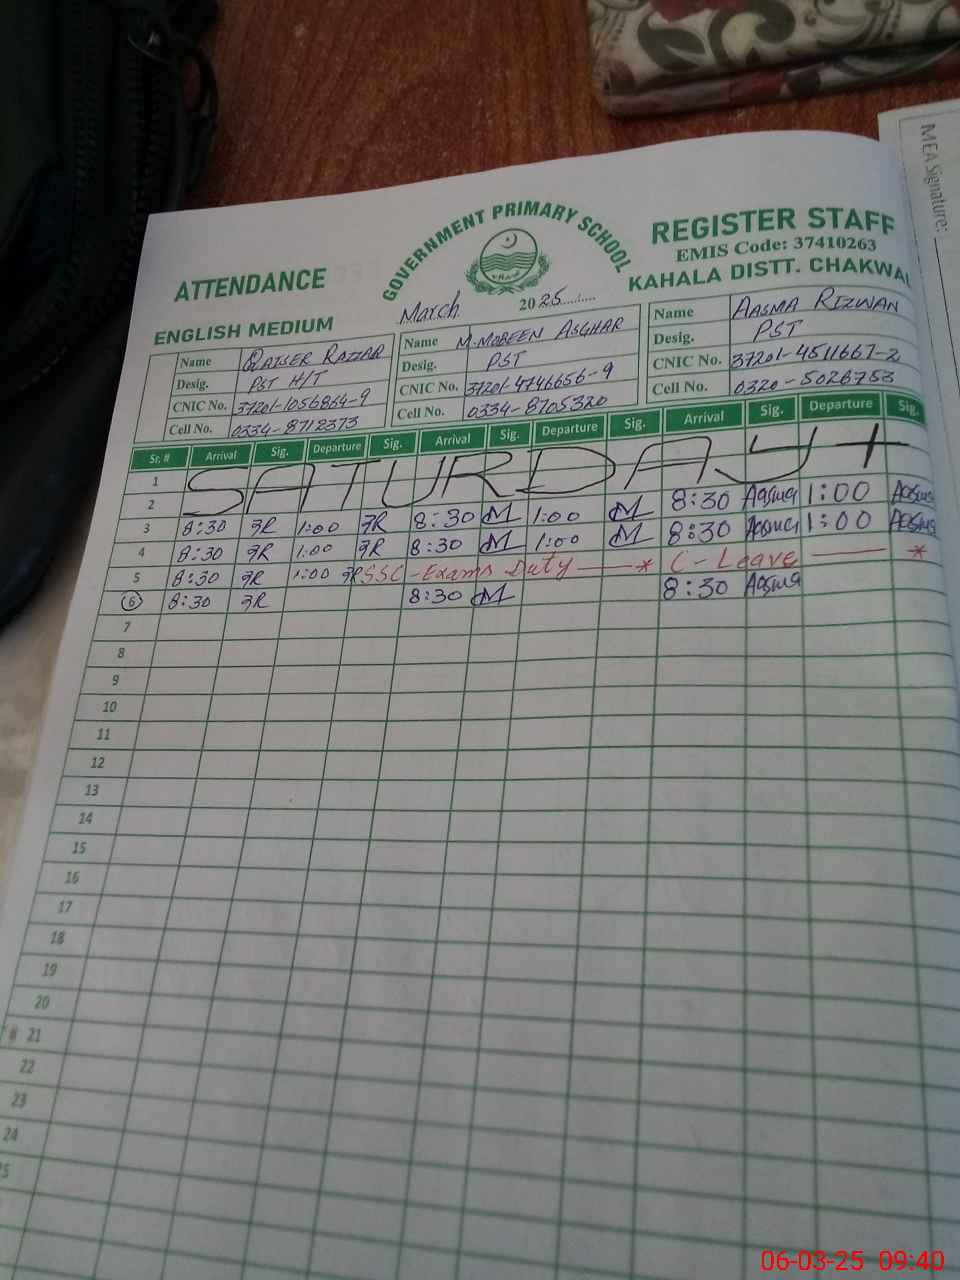 MEA Signature:
GOVERNMENT PRIMARY SCHOOL
ATTENDANCE
REGISTER STAFF
EMIS Code: 37410263
KAHALA DISTT. CHAKWAL
ENGLISH MEDIUM
March 2025
Name QAISER RAZZAQ
Desig. PST H/T
CNIC No. 37201-1056864-9
Cell No. 0334-8712373
Name M.MOBEEN ASGHAR
Desig. PST
CNIC No. 37201-4746656-9
Cell No. 0334-8705320
Name AASMA RIZWAN
Desig. PST
CNIC No. 37201-4511667-2
Cell No. 0320-5026753
Sr. # Arrival Sig. Departure Sig. Arrival Sig. Departure Sig. Arrival Sig. Departure Sig.
1 SATURDAY
2
3 8:30 1:00 8:30 M 1:00 M 8:30 Aasma 1:00 Aasma
4 8:30 1:00 8:30 M 1:00 M 8:30 Aasma 1:00 Aasma
5 8:30 1:00 SSC-Exams Duty —* C-Leave —*
6 8:30 8:30 M 8:30 Aasma
7
8
9
10
11
12
13
14
15
16
17
18
19
20
# 21
22
23
24
5
06-03-25 09:40